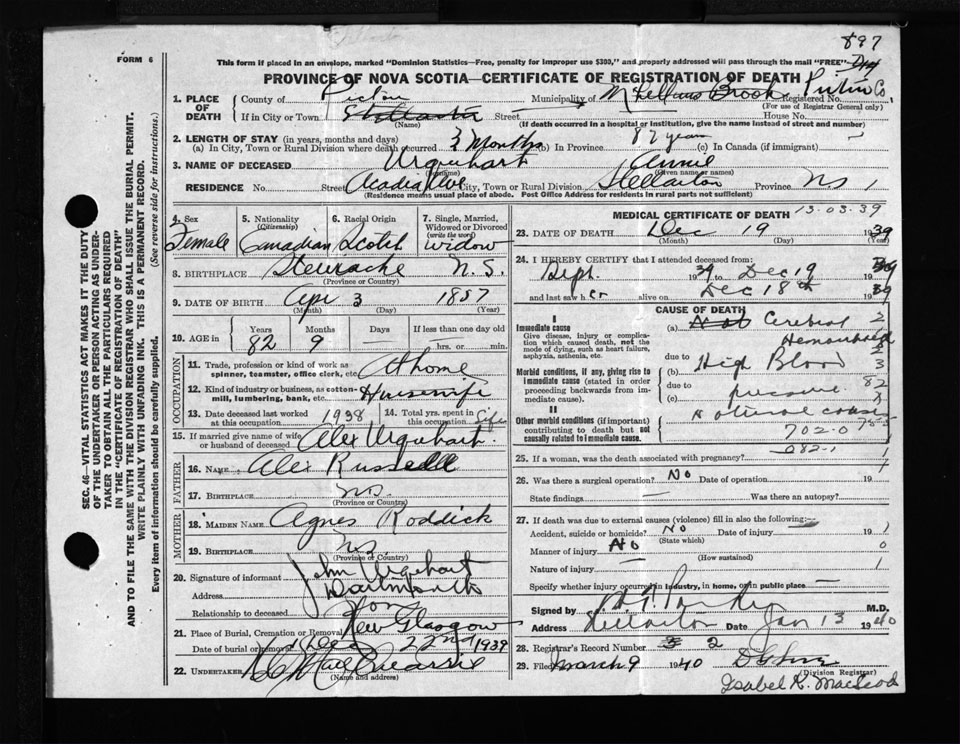 897
FORM 6
This form if placed in an envelope, marked "Dominion Statistics—Free, penalty for improper use $300," and properly addressed will pass through the mail "FREE"
PROVINCE OF NOVA SCOTIA—CERTIFICATE OF REGISTRATION OF DEATH
1. PLACE OF DEATH County of Pictou Municipality of McLellans Brook Registered No. Pictou Co.
(For use of Registrar General only)
If in City or Town Stellarton Street House No.
(Name) (If death occurred in a hospital or institution, give the name instead of street and number)
2. LENGTH OF STAY (in years, months and days)
(a) In City, Town or Rural Division where death occurred 3 Months (b) In Province 82 years (c) In Canada (if immigrant) —
3. NAME OF DECEASED Urquhart Annie
(Surname) (Given name or names)
RESIDENCE No. Street Acadia Ave City, Town or Rural Division Stellarton Province NS 1
(Residence means usual place of abode. Post Office Address for residents in rural parts not sufficient)
4. Sex Female
5. Nationality (Citizenship) Canadian
6. Racial Origin Scotch
7. Single, Married, Widowed or Divorced (write the word) Widow
8. BIRTHPLACE N.S.
(Province or Country)
9. DATE OF BIRTH Apr 3 1857
(Month) (Day) (Year)
10. AGE in Years 82 Months 9 Days If less than one day old hrs. or min.
OCCUPATION
11. Trade, profession or kind of work as spinner, teamster, office clerk, etc. At home
12. Kind of industry or business, as cotton-mill, lumbering, bank, etc. Housewife
13. Date deceased last worked at this occupation 1938 14. Total yrs. spent in this occupation Life
15. If married give name of wife or husband of deceased Alex Urquhart.
FATHER
16. NAME Alex Russell
17. BIRTHPLACE N.S.
(Province or Country)
MOTHER
18. MAIDEN NAME Agnes Roddick
19. BIRTHPLACE N.S.
(Province or Country)
20. Signature of informant John Urquhart
Address Dartmouth
Relationship to deceased Son
21. Place of Burial, Cremation or Removal New Glasgow
Date of burial or removal Dec 22nd 1939
22. UNDERTAKER
(Name and address)
MEDICAL CERTIFICATE OF DEATH 13-03-39
23. DATE OF DEATH Dec 19 1939
(Month) (Day) (Year)
24. I HEREBY CERTIFY that I attended deceased from:
Sept. 1939 to Dec 19 1939
and last saw her alive on Dec 18th 1939
CAUSE OF DEATH
I
Immediate cause
Give disease, injury or complication which caused death, not the mode of dying, such as heart failure, asphyxia, asthenia, etc.
(a) Cerebral Hemorrhage
Morbid conditions, if any, giving rise to immediate cause (stated in order proceeding backwards from immediate cause).
due to
(b) High Blood
due to
(c) pressure
II
Other morbid conditions (if important) contributing to death but not causally related to immediate cause.
Natural cause
702.0
082-1
25. If a woman, was the death associated with pregnancy?
26. Was there a surgical operation? No Date of operation 19
State findings — Was there an autopsy?
27. If death was due to external causes (violence) fill in also the following:—
Accident, suicide or homicide? No Date of injury 19
(State which)
Manner of injury No
(How sustained)
Nature of injury —
Specify whether injury occurred in industry, in home, or in public place —
Signed by M.D.
Address Stellarton Date Jan 13 1940
28. Registrar's Record Number 2
29. Filed March 9 1940
(Division Registrar)
Isabel K. MacLeod
SEC. 46—VITAL STATISTICS ACT MAKES IT THE DUTY OF THE UNDERTAKER OR PERSON ACTING AS UNDERTAKER TO OBTAIN ALL THE PARTICULARS REQUIRED IN THE "CERTIFICATE OF REGISTRATION OF DEATH"
AND TO FILE THE SAME WITH THE DIVISION REGISTRAR WHO SHALL ISSUE THE BURIAL PERMIT.
WRITE PLAINLY WITH UNFADING INK. THIS IS A PERMANENT RECORD.
Every item of information should be carefully supplied. (See reverse side for instructions.)